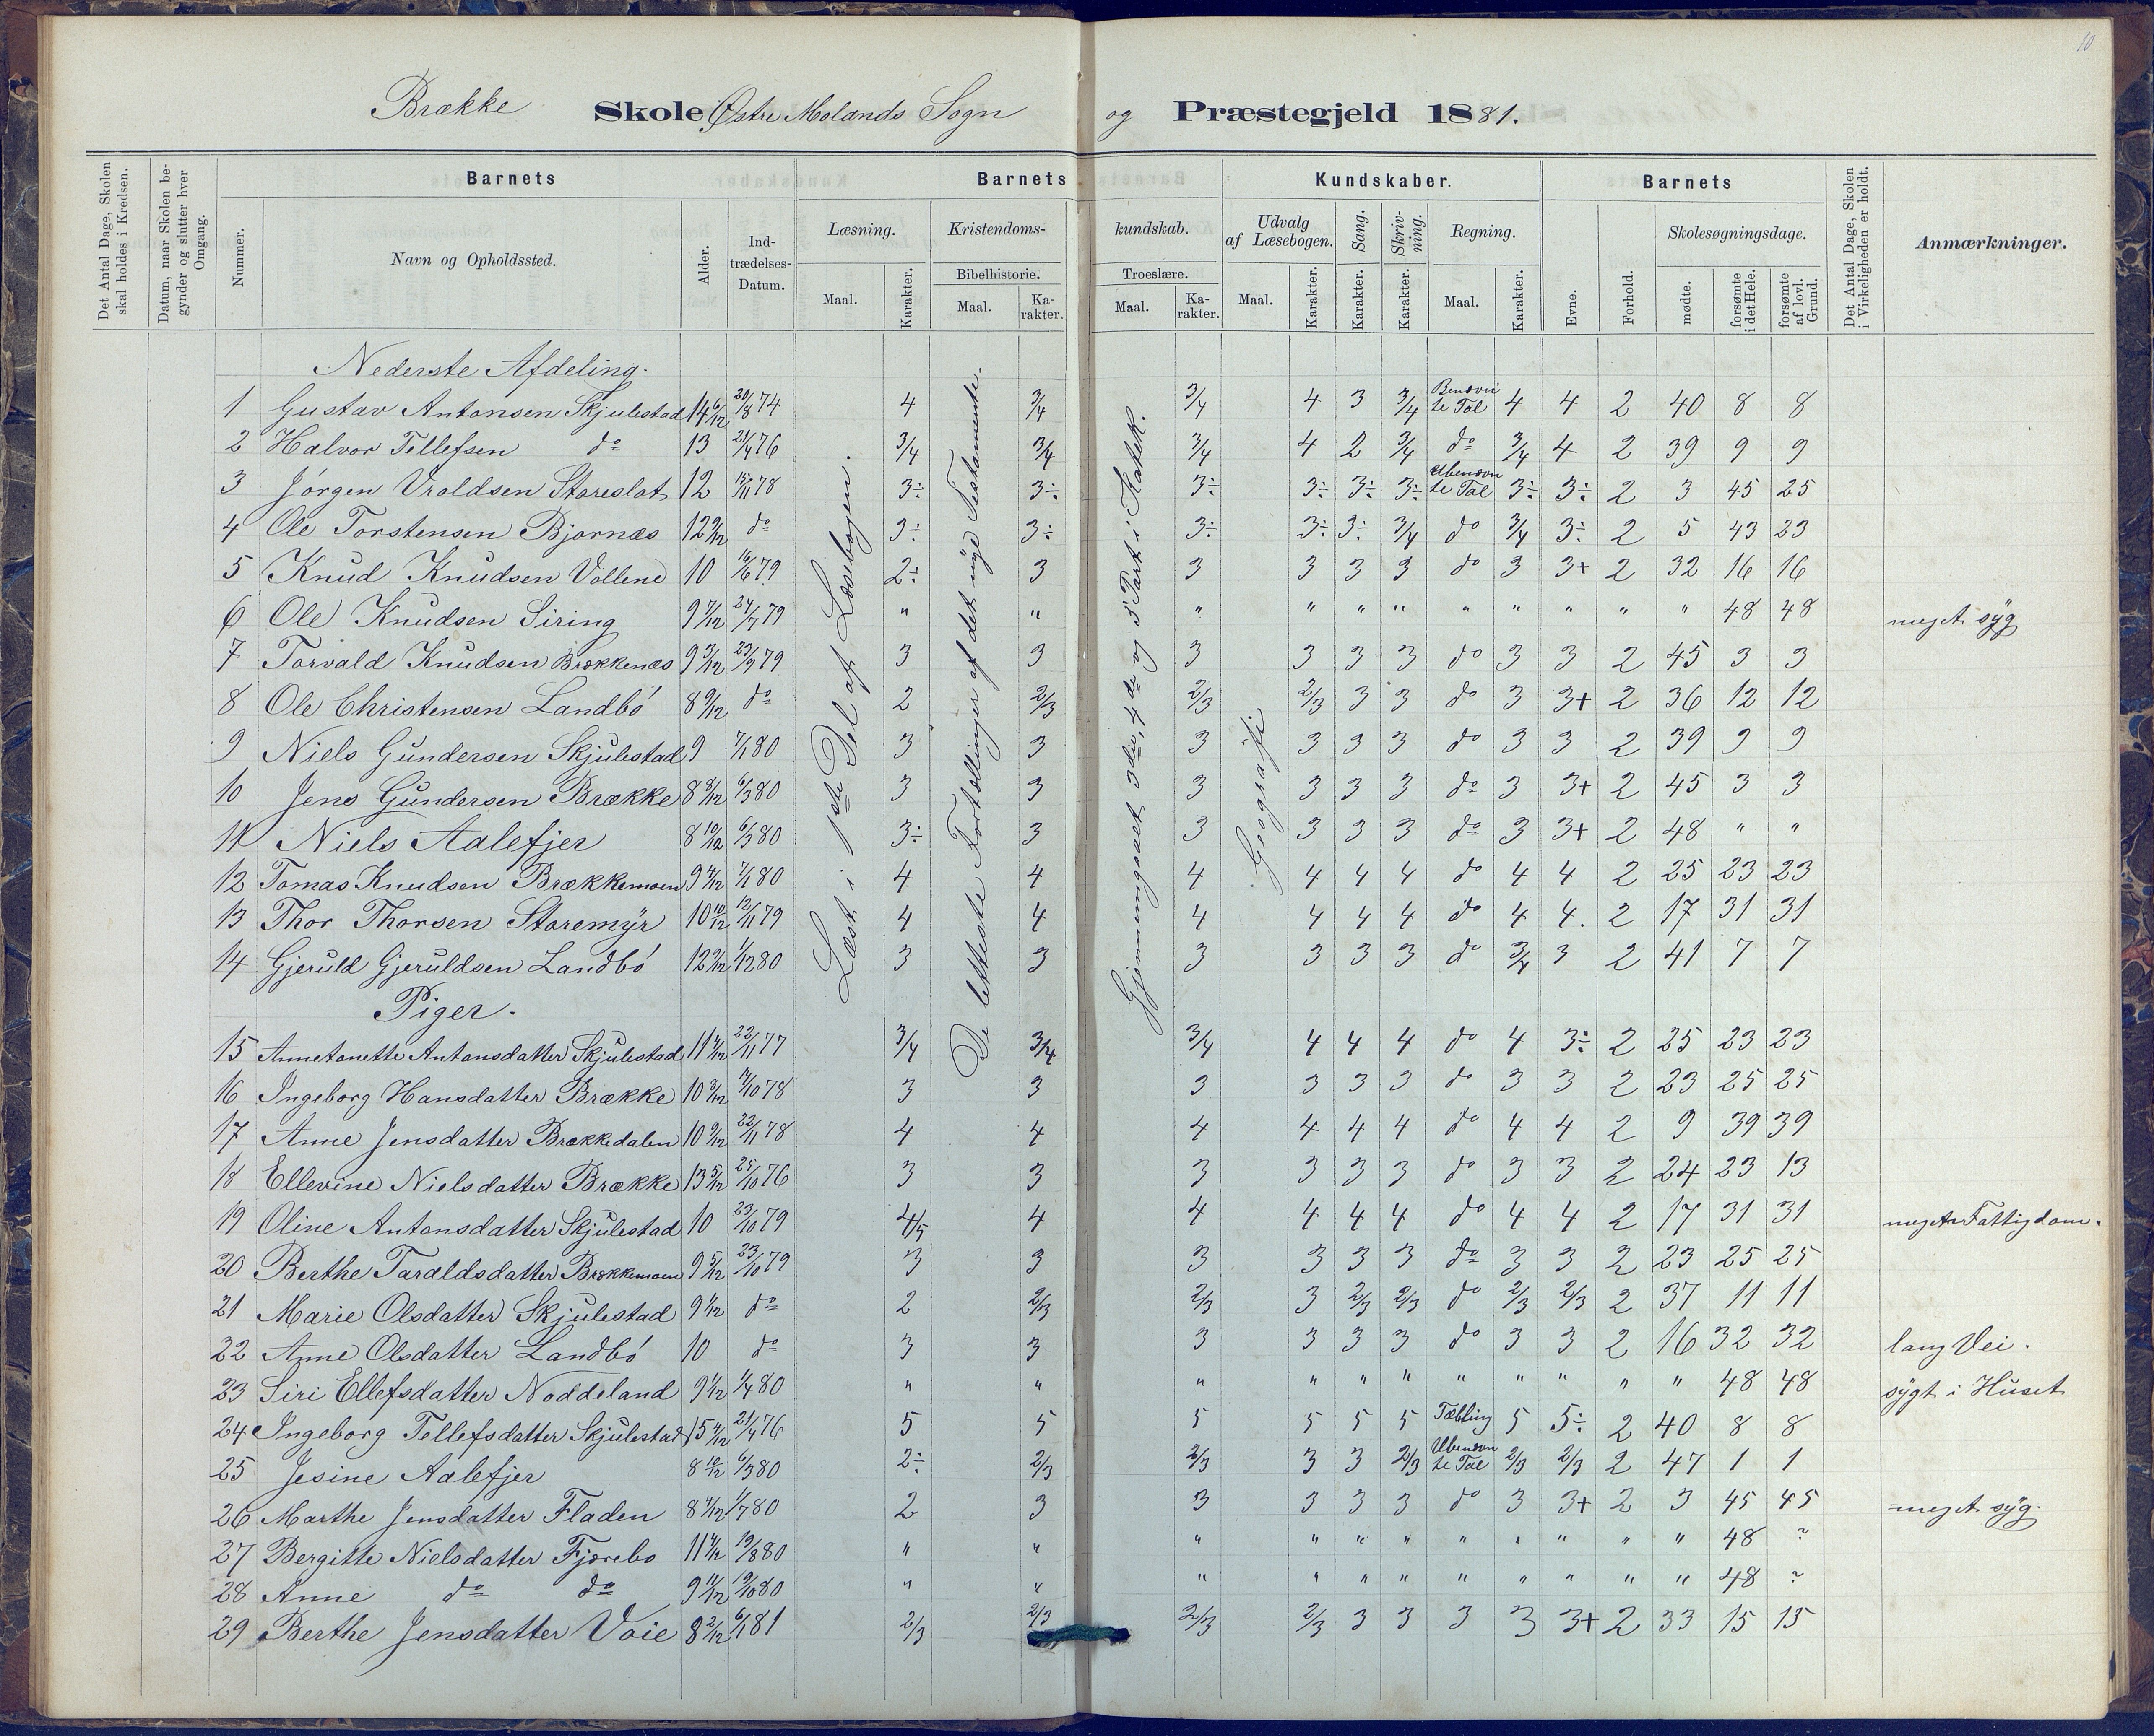 10
Brække Skole Østre Molands Sogn og Præstegjeld 1881.
Det Antal Dage, Skolen skal holdes i Kredsen.
Datum, naar Skolen begynder og slutter hver Omgang.
Barnets
Nummer.
Navn og Opholdssted.
Alder.
Indtrædelses-Datum.
Barnets
Læsning.
Maal.
Karakter.
Kristendoms-
Bibelhistorie.
Maal.
Karakter.
kundskab.
Troeslære.
Maal.
Karakter.
Kundskaber.
Udvalg af Læsebogen.
Maal.
Karakter.
Sang.
Karakter.
Skrivning.
Karakter.
Regning.
Maal.
Karakter.
Barnets
Evne.
Forhold.
Skolesøgningsdage.
mødte.
forsømte i det Hele.
forsømte af lovl. Grund.
Det Antal Dage, Skolen i Virkeligheden er holdt.
Anmærkninger.
Læst i 1ste Del af Læsebogen.
De letteste Fortællinger af det nye Testamente.
Gjennemgaaet 3die, 4de og 5 Part i Katek.
Geografi
Nederste Afdeling.
1 Gustav Antonsen Skjulestad 14 6/12 20/8 74 4 3/4 3/4 4 3 3/4 Benævnte Tal 4 4 2 40 8 8
2 Halvor Tellefsen do 13 21/4 76 3/4 3/4 3/4 4 2 3/4 do 3/4 4 2 39 9 9
3 Jörgen Vroldsen Storeslot 12 15/11 78 3÷ 3÷ 3÷ 3÷ 3÷ 3÷ Ubenævnte Tal 3÷ 3÷ 2 3 45 25
4 Ole Torstensen Bjornæs 12 9/12 do 3÷ 3÷ 3÷ 3÷ 3÷ 3/4 do 3/4 3÷ 2 5 43 23
5 Knud Knudsen Vollene 10 16/6 79 2÷ 3 3 3 3 3 do 3 3+ 2 32 16 16
6 Ole Knudsen Siring 9 7/12 24/7 79 " " " " " " " " " " " 48 48 meget syg
7 Torvald Knudsen Brækkenæs 9 3/12 23/9 79 3 3 3 3 3 3 do 3 3 2 45 3 3
8 Ole Christensen Landbö 8 9/12 do 2 2/3 2/3 2/3 3 3 do 3 3+ 2 36 12 12
9 Niels Gundersen Skjulestad 9 7/1 80 3 3 3 3 3 3 do 3 3 2 39 9 9
10 Jens Gundersen Brække 8 8/12 6/3 80 3 3 3 3 3 3 do 3 3+ 2 45 3 3
11 Niels Aalefjer 8 10/12 6/3 80 3÷ 3 3 3 3 3 do 3 3+ 2 48 " "
12 Tomas Knudsen Brækkemoen 9 4/12 7/1 80 4 4 4 4 4 4 do 4 4 2 25 23 23
13 Thor Thorsen Storemyr 10 10/12 12/11 79 4 4 4 4 4 4 do 4 4. 2 17 31 31
14 Gjeruld Gjeruldsen Landbö 12 2/12 1/12 80 3 3 3 3 3 3 do 3/4 3 2 41 7 7
Piger.
15 Annetonette Antonsdatter Skjulestad 11 4/12 22/11 77 3/4 3/4 3/4 4 4 4 do 4 3÷ 2 25 23 23
16 Ingeborg Hansdatter Brække 10 8/12 7/10 78 3 3 3 3 3 3 do 3 3 2 23 25 25
17 Anne Jensdatter Brækkedalen 10 9/12 22/11 78 4 4 4 4 4 4 do 4 4 2 9 39 39
18 Ellevine Nielsdatter Brække 13 5/12 25/10 76 3 3 3 3 3 3 do 3 3 2 24 23 13
19 Oline Antonsdatter Skjulestad 10 23/10 79 4/5 4 4 4 4 4 do 4 4 2 17 31 31 meget Fattigdom.
20 Berthe Taraldsdatter Brækkemoen 9 5/12 23/10 79 3 3 3 3 3 3 do 3 3 2 23 25 25
21 Marie Olsdatter Skjulestad 9 4/12 do 2 2/3 2/3 3 2/3 2/3 do 2/3 2/3 2 37 11 11
22 Anne Olsdatter Landbö 10 do 3 3 3 3 3 3 do 3 3 2 16 32 32 lang Vei.
23 Siri Ellefsdatter Noddeland 9 1/12 1/4 80 " " " " " " " " " " " 48 48 sygt i Huset
24 Ingeborg Tellefsdatter Skjulestad 15 4/12 21/4 76 5 5 5 5 5 5 Tælling 5 5÷ 2 40 8 8
25 Jesine Aalefjer 8 10/12 6/3 80 2÷ 2/3 2/3 3 3 2/3 Ubenævnte Tal 2/3 2/3 2 47 1 1
26 Marthe Jensdatter Fladen 8 4/12 1/7 80 2 3 3 3 3 3 do 3 3+ 2 3 45 45 meget syg.
27 Bergitte Nielsdatter Fjærebo 11 4/12 19/8 80 " " " " " " " " " " " 48 ?
28 Anne do do 9 11/12 19/10 80 " " " " " " " " " " " 48 ?
29 Berthe Jensdatter Voie 8 2/12 6/1 81 2/3 2/3 2/3 2/3 3 3 3 3 3+ 2 33 15 15